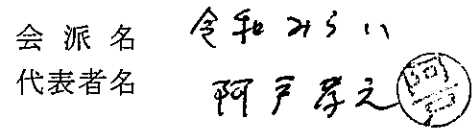 会派名 令和みらい
代表者名 阿戸孝之